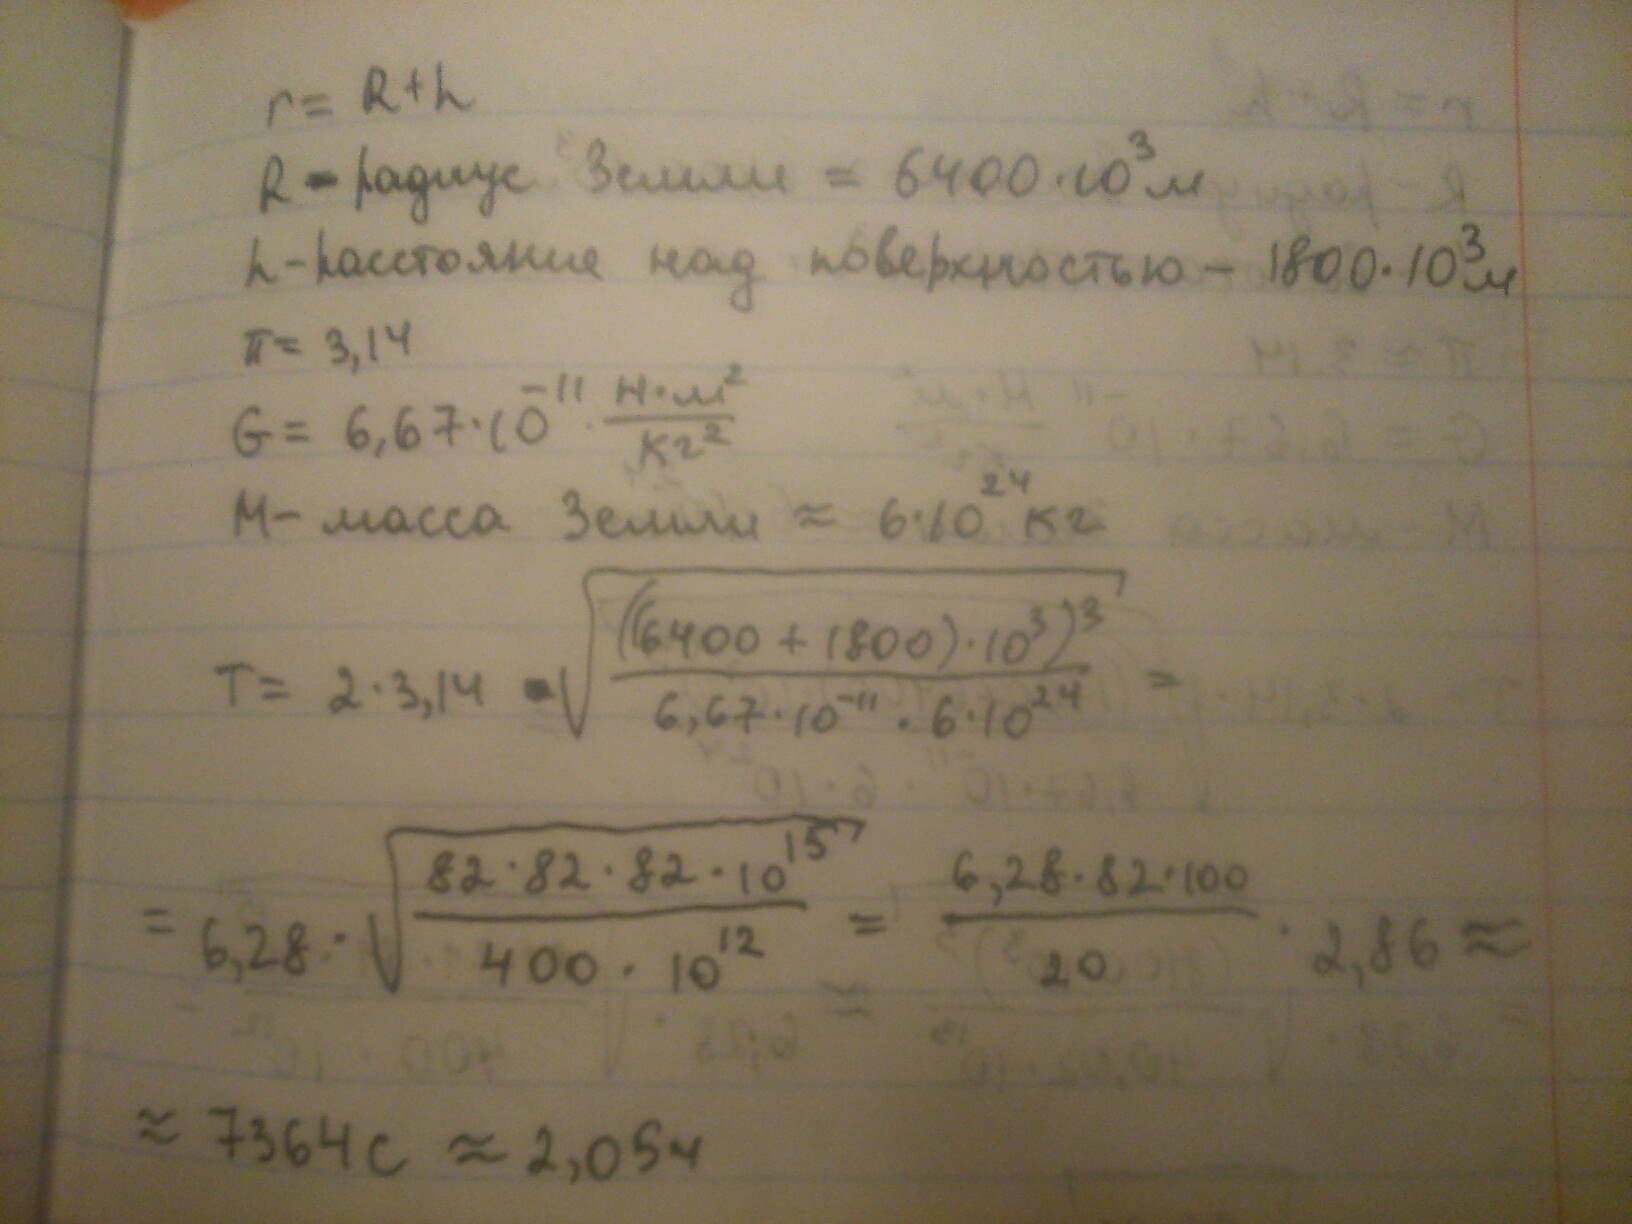 r = R+h
R - радиус Земли = 6400·10³м
h - расстояние над поверхностью - 1800·10³м
π = 3,14
G = 6,67·10⁻¹¹ · Н·м²/кг²
М - масса Земли ≈ 6·10²⁴ кг
T = 2·3,14 · √(((6400+1800)·10³)³ / (6,67·10⁻¹¹ · 6·10²⁴)) =
= 6,28 · √(82·82·82·10¹⁵ / (400·10¹²)) = 6,28·82·100/20 · 2,86 ≈
≈ 7364с ≈ 2,05ч